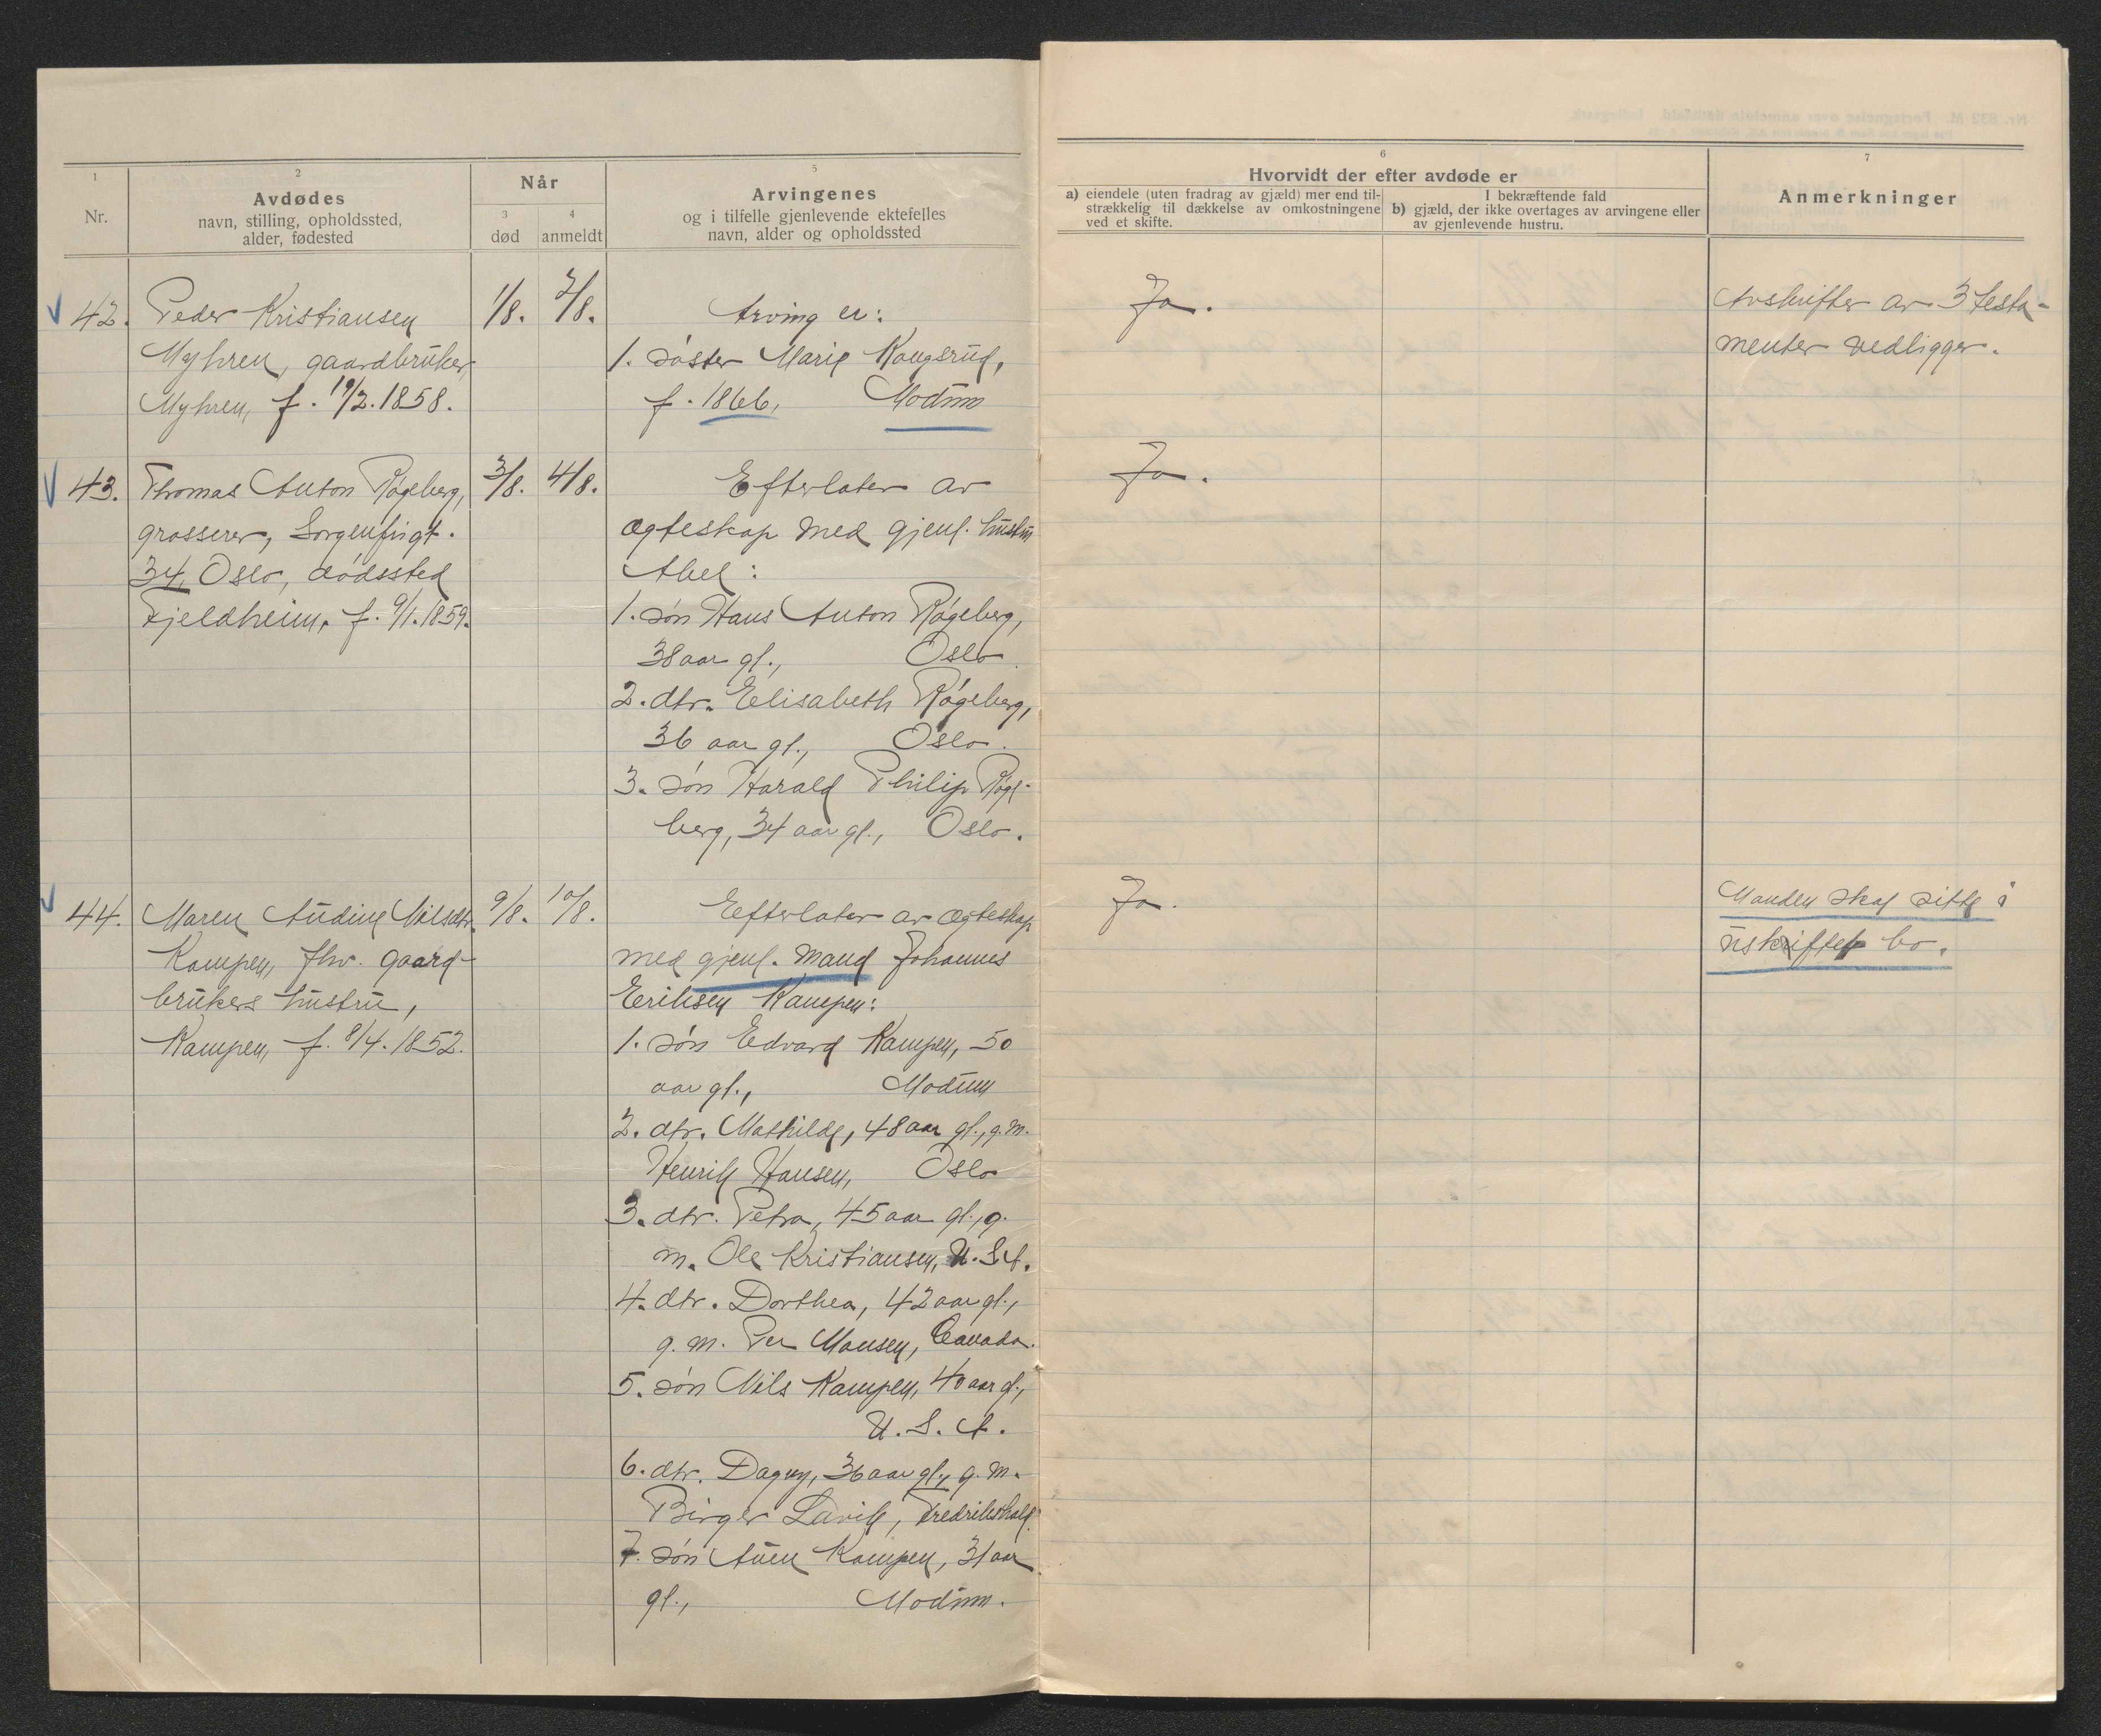 1
2
Avdødes
navn, stilling, opholdssted,
alder, fødested
Nr.
Når
3
død
4
anmeldt
5
Arvingenes
og i tilfelle gjenlevende ektefelles
navn, alder og opholdssted
6
Hvorvidt der efter avdøde er
a) eiendele (uten fradrag av gjæld) mer end til-
strækkelig til dækkelse av omkostningene
ved et skifte.
I bekræftende fald
b) gjæld, der ikke overtages av arvingene eller
av gjenlevende hustru.
7
Anmerkninger
42.
Peder Kristiansen
Myhren, gaardbruker,
Myhren, f. 19/2.1858.
1/8.
2/8.
Arving er:
1. søster Marie Kongsrud,
f. 1866, Modum
Ja.
Avskrifter av 3 testa-
menter vedligger.
43.
Thomas Anton Røgeberg,
grosserer, Sorgenfrigt.
34, Oslo, dødssted
Fjeldheim, f. 9/1.1859.
3/8.
4/8.
Efterlater av
ægteskap med gjenl. hustru
Abel:
1. søn Hans Anton Røgeberg,
38 aar gl., Oslo.
2. dtr. Elisabeth Røgeberg,
36 aar gl., Oslo.
3. søn Harald Philip Røge-
berg, 34 aar gl., Oslo.
Ja.
44.
Maren Andine Nilsdtr.
Kampen, fhv. gaard-
brukers hustru,
Kampen, f. 8/4.1852.
9/8.
10/8.
Efterlater av ægteskap
med gjenl. mand Johannes
Eriksen Kampen:
1. søn Edvard Kampen, 50
aar gl., Modum
2. dtr. Mathilde, 48 aar gl., g.m.
Henrik Hansen, Oslo
3. dtr. Petra, 45 aar gl., g.
m. Ole Kristiansen, U.S.A.
4. dtr. Dorthea, 42 aar gl.,
g.m. Per Monsen, Canada.
5. søn Nils Kampen, 40 aar gl.,
U.S.A.
6. dtr. Dagny, 36 aar gl., g.m.
Birger Lavik, Fredrikshald.
7. søn Auen Kampen, 31 aar
gl., Modum.
Ja.
Manden skal sitte i
uskiftet bo.